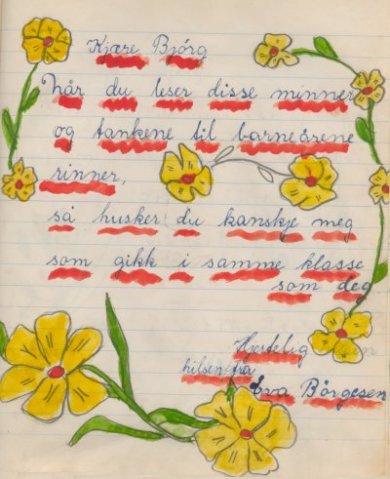 Kjære Bjórg
når du leser disse minner
og tankene til barneårene
rinner,
så husker du kanskje meg
som gikk i samme klasse
som deg
Hjertelig
hilsen fra
Eva Børgesen